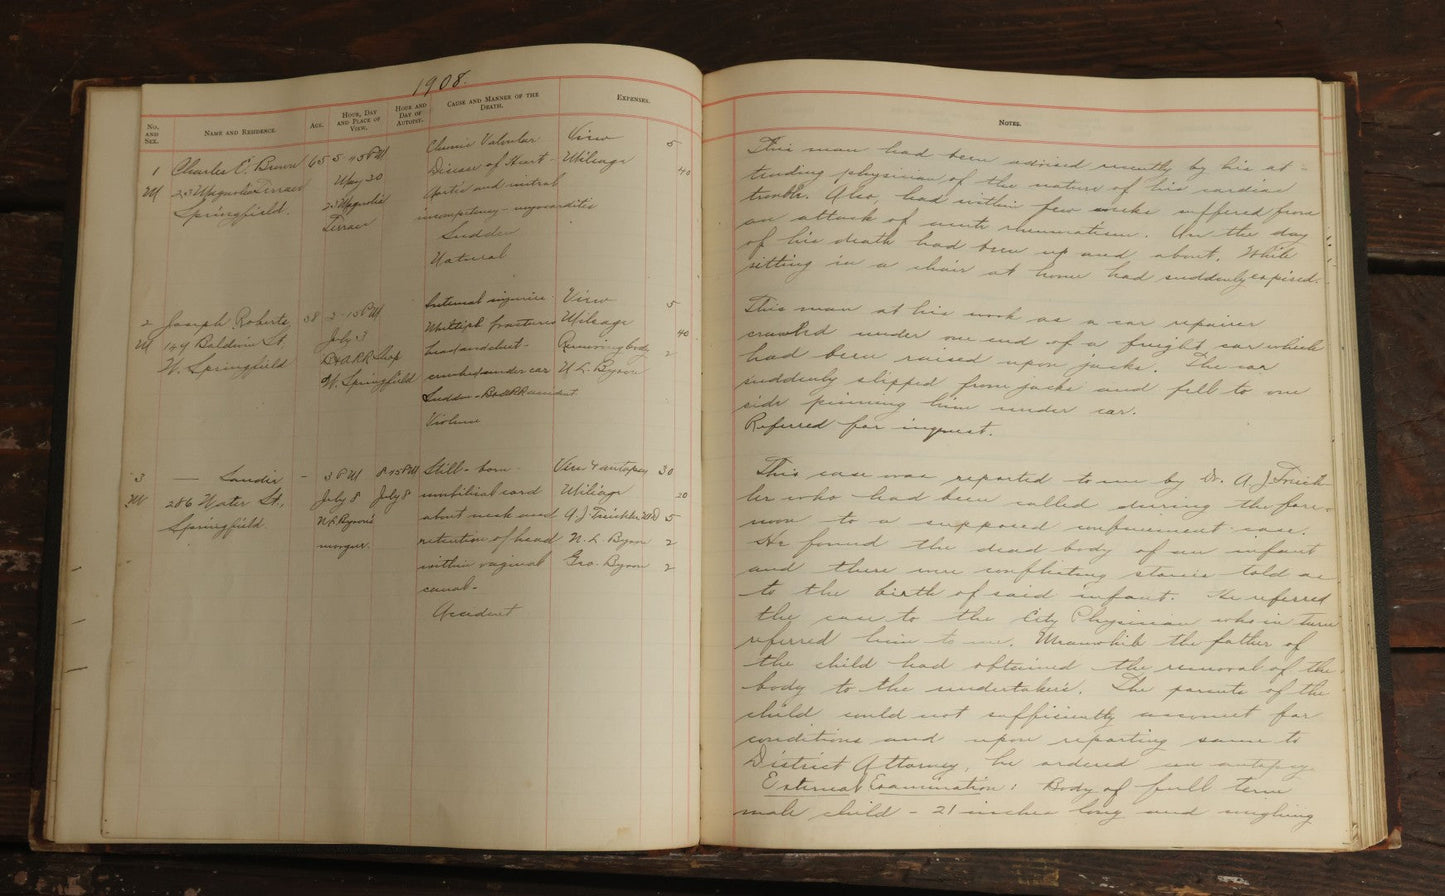 1908.
No. and Sex.
Name and Residence.
Age.
Hour, Day and Place of View.
Hour and Day of Autopsy.
Cause and Manner of the Death.
Expenses.
1 Charles E. Brown 65 5-45 PM Chronic Valvular View 5
M 23 Magnolia Terrace May 20 Disease of Heart - Mileage 40
Springfield. 23 Magnolia Aortic and mitral
Terrace incompetency - myocarditis
Sudden
Natural
2 Joseph Roberts 38 2-15 PM Internal injuries View 5
M 149 Baldwin St. July 3 Multiple fractures Mileage 40
W. Springfield B&ARR Shop head and chest - Removing body 2
W. Springfield crushed under car Byron
Sudden - B&ARR accident
Violence
3 — Landis - 3 PM 8-15 PM Still-born - View & autopsy 30
M 286 Water St., July 8 July 8 umbilical cord Mileage 20
Springfield. Byron's about neck and A. J. Trechler MD 5
morgue. retention of head Byron 2
within vaginal Geo. Byron 2
canal.
Accident
Notes.
This man had been advised recently by his at-
tending physician of the nature of his cardiac
trouble. Also, had within few weeks suffered from
an attack of acute rheumatism. On the day
of his death had been up and about. While
sitting in a chair at home had suddenly expired.
This man at his work as a car repairer
crawled under one end of a freight car which
had been raised upon jacks. The car
suddenly slipped from jacks and fell to one
side pinning him under car.
Referred for inquest.
This case was reported to me by Dr. A. J. Trech-
ler who had been called during the fore-
noon to a supposed confinement case.
He found the dead body of an infant
and there were conflicting stories told as
to the birth of said infant. He referred
the case to the City Physician who in turn
referred him to me. Meanwhile the father of
the child had obtained the removal of the
body to the undertaker's. The parents of the
child could not sufficiently account for
conditions and upon reporting same to
District Attorney, he ordered an autopsy.
External Examination: Body of full term
male child - 21 inches long and weighing